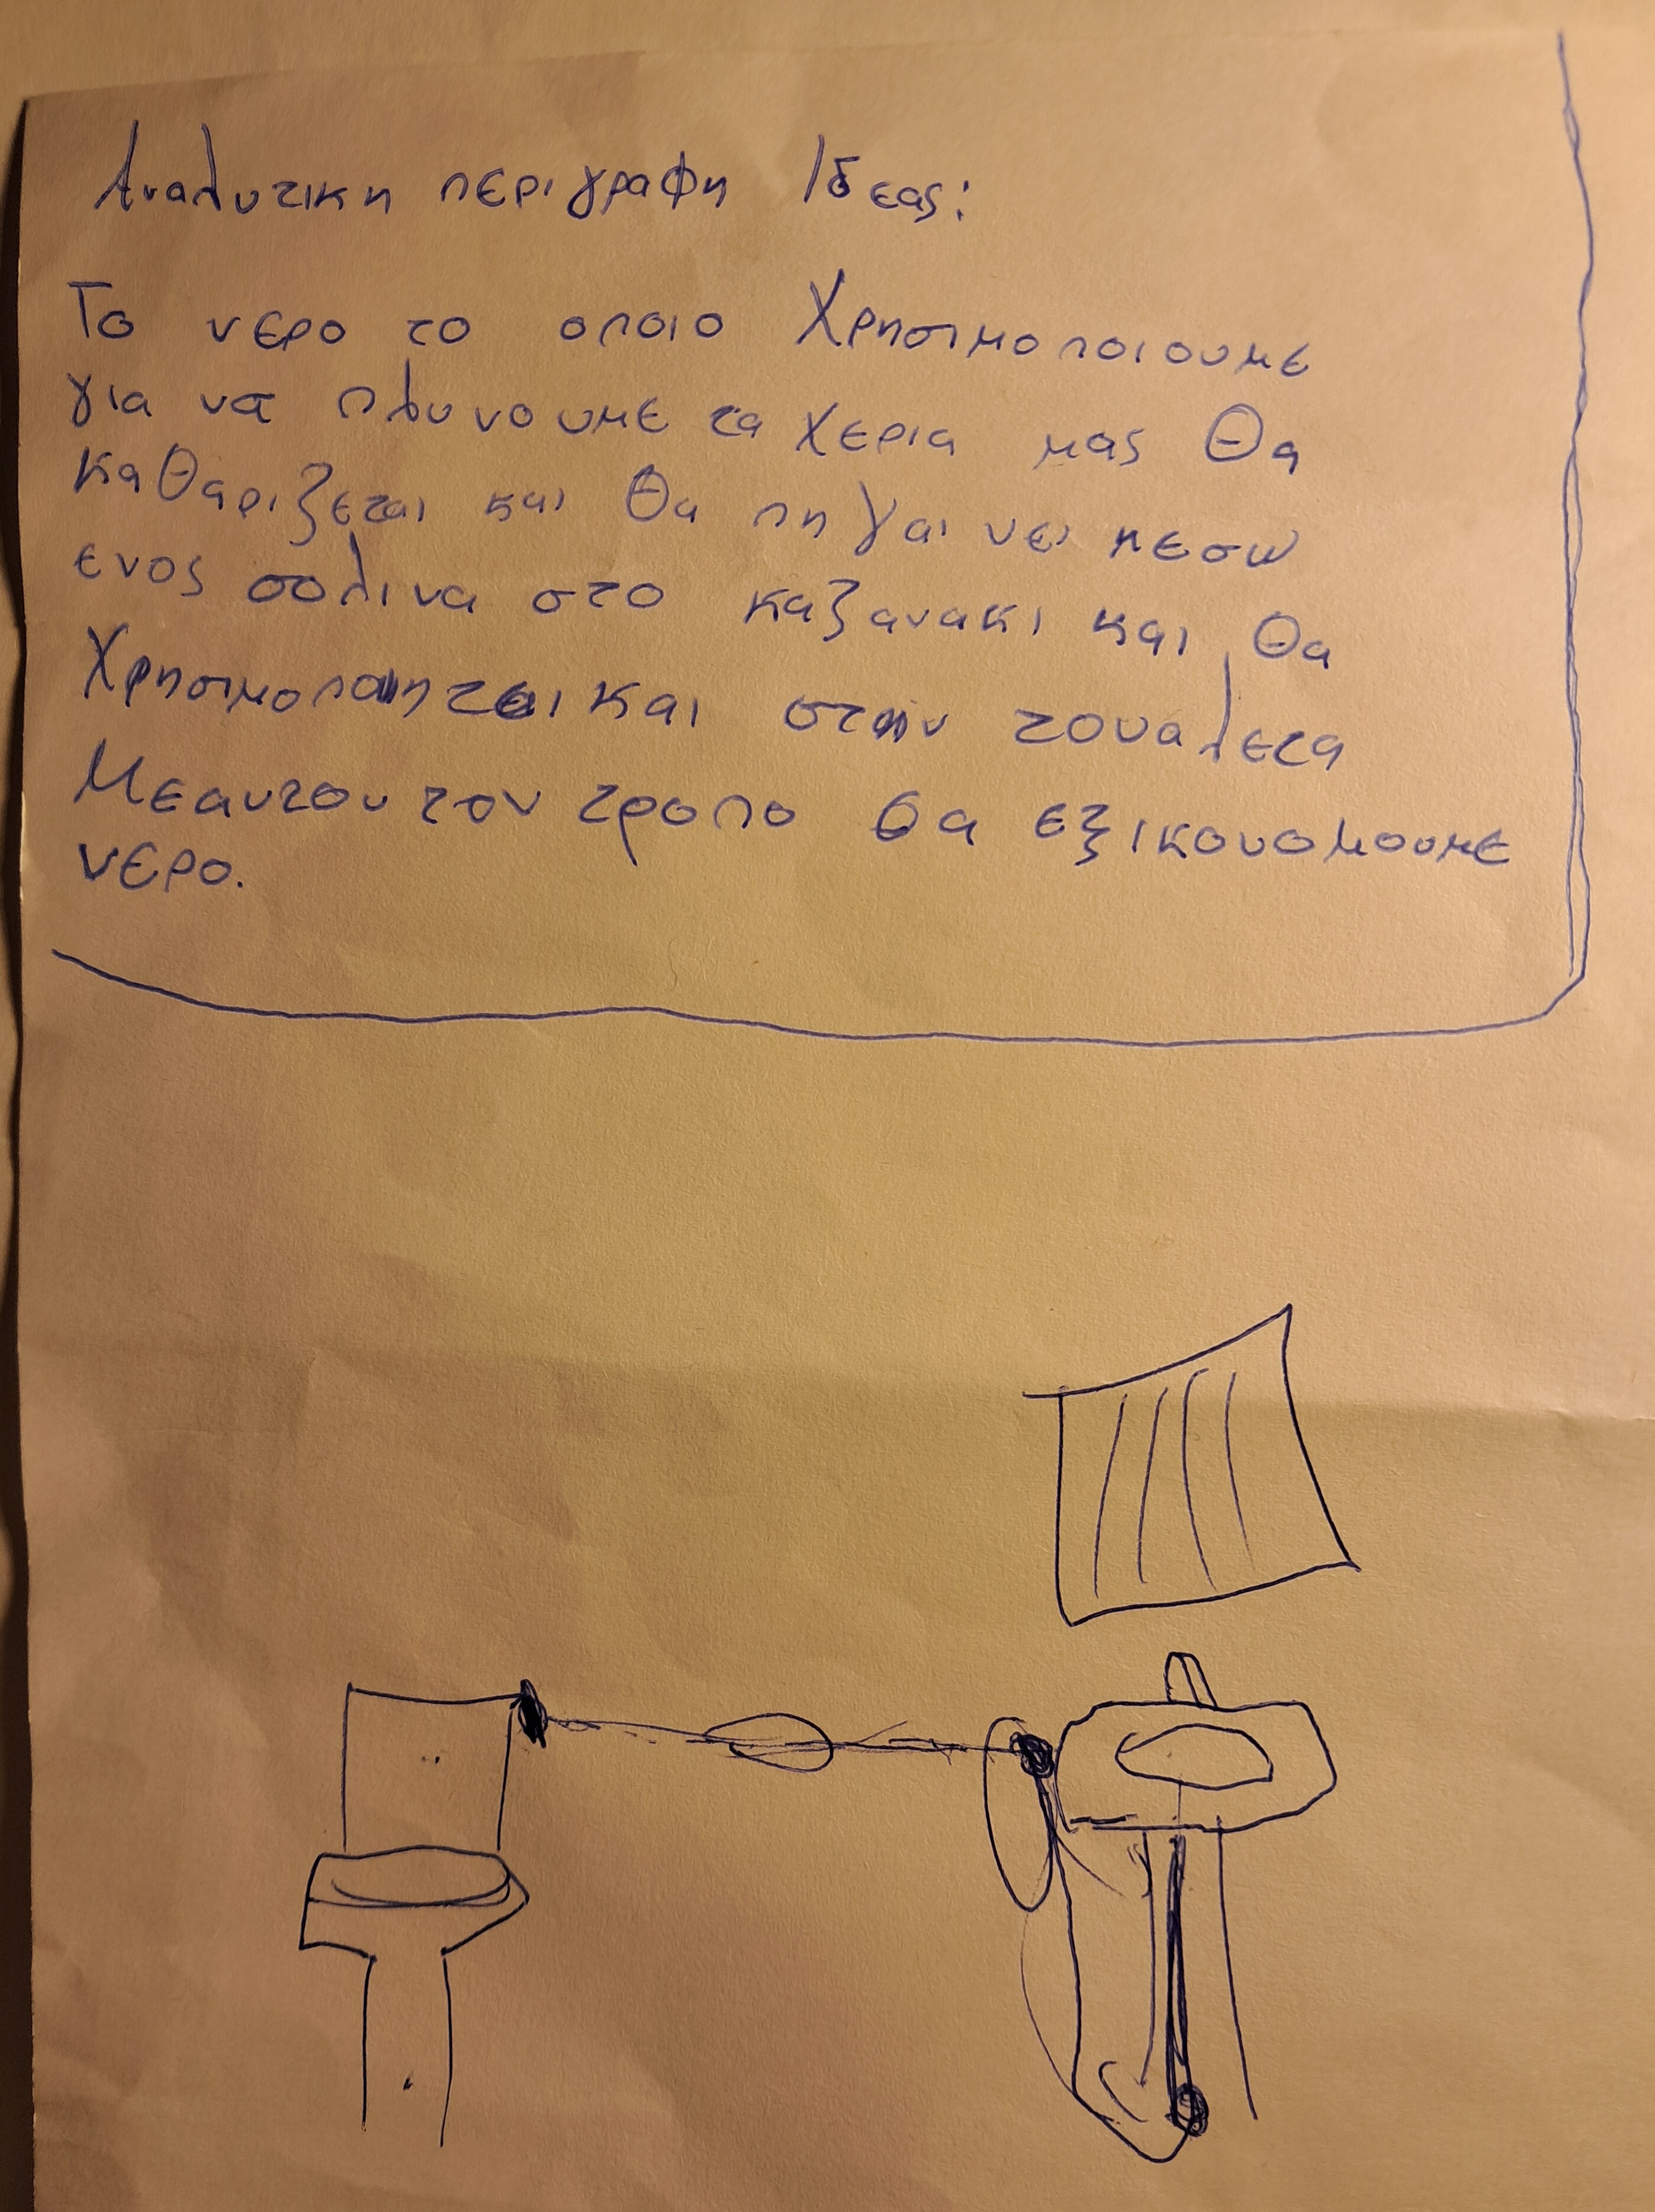 Αναλυτικη περιγραφη Ιδεας:
Το νερο το οποιο Χρησιμοποιουμε
για να πλυνουμε τα χερια μας Θα
καθαριζεται και Θα πηγαινει μεσω
ενος σολινα στο καζανακι και Θα
και στην τουαλετα
Μεαυτου τον τροπο θα εξικονομουμε
νερο.